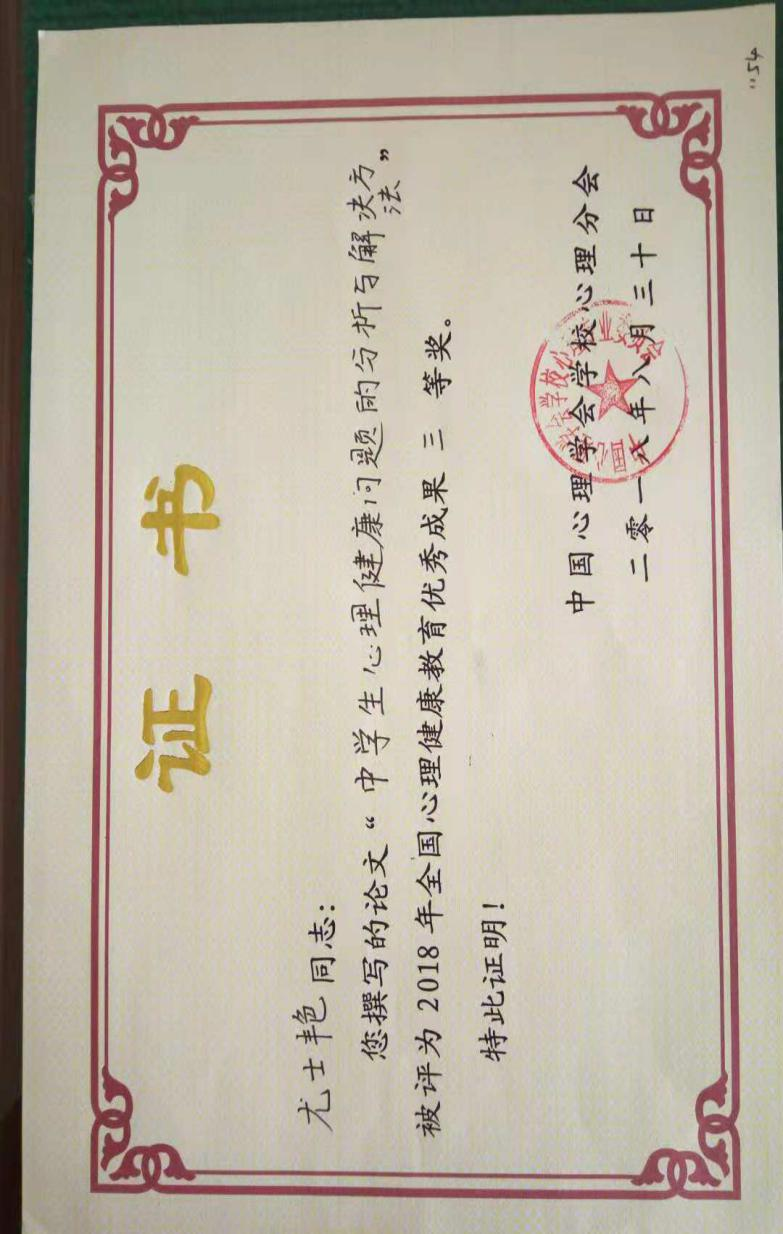 证 书
尤士艳同志：
您撰写的论文“中学生心理健康问题的分析与解决方法”
被评为2018年全国心理健康教育优秀成果 三 等奖。
特此证明！
中国心理学会学校心理分会
二零一八年八月三十日
54